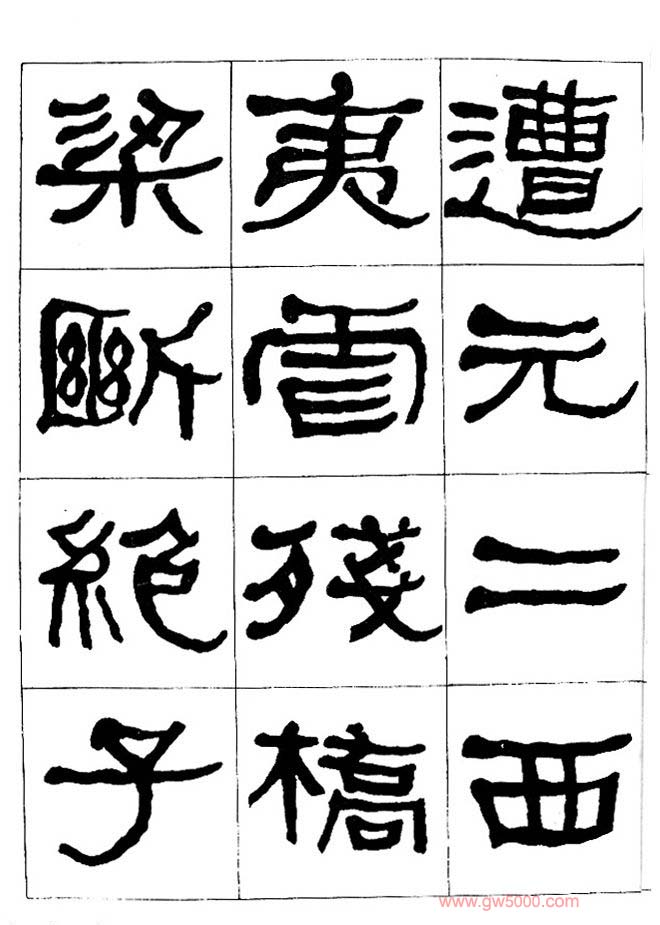 遭元二西
夷虐殘橋
梁斷絕子
www.gw5000.com